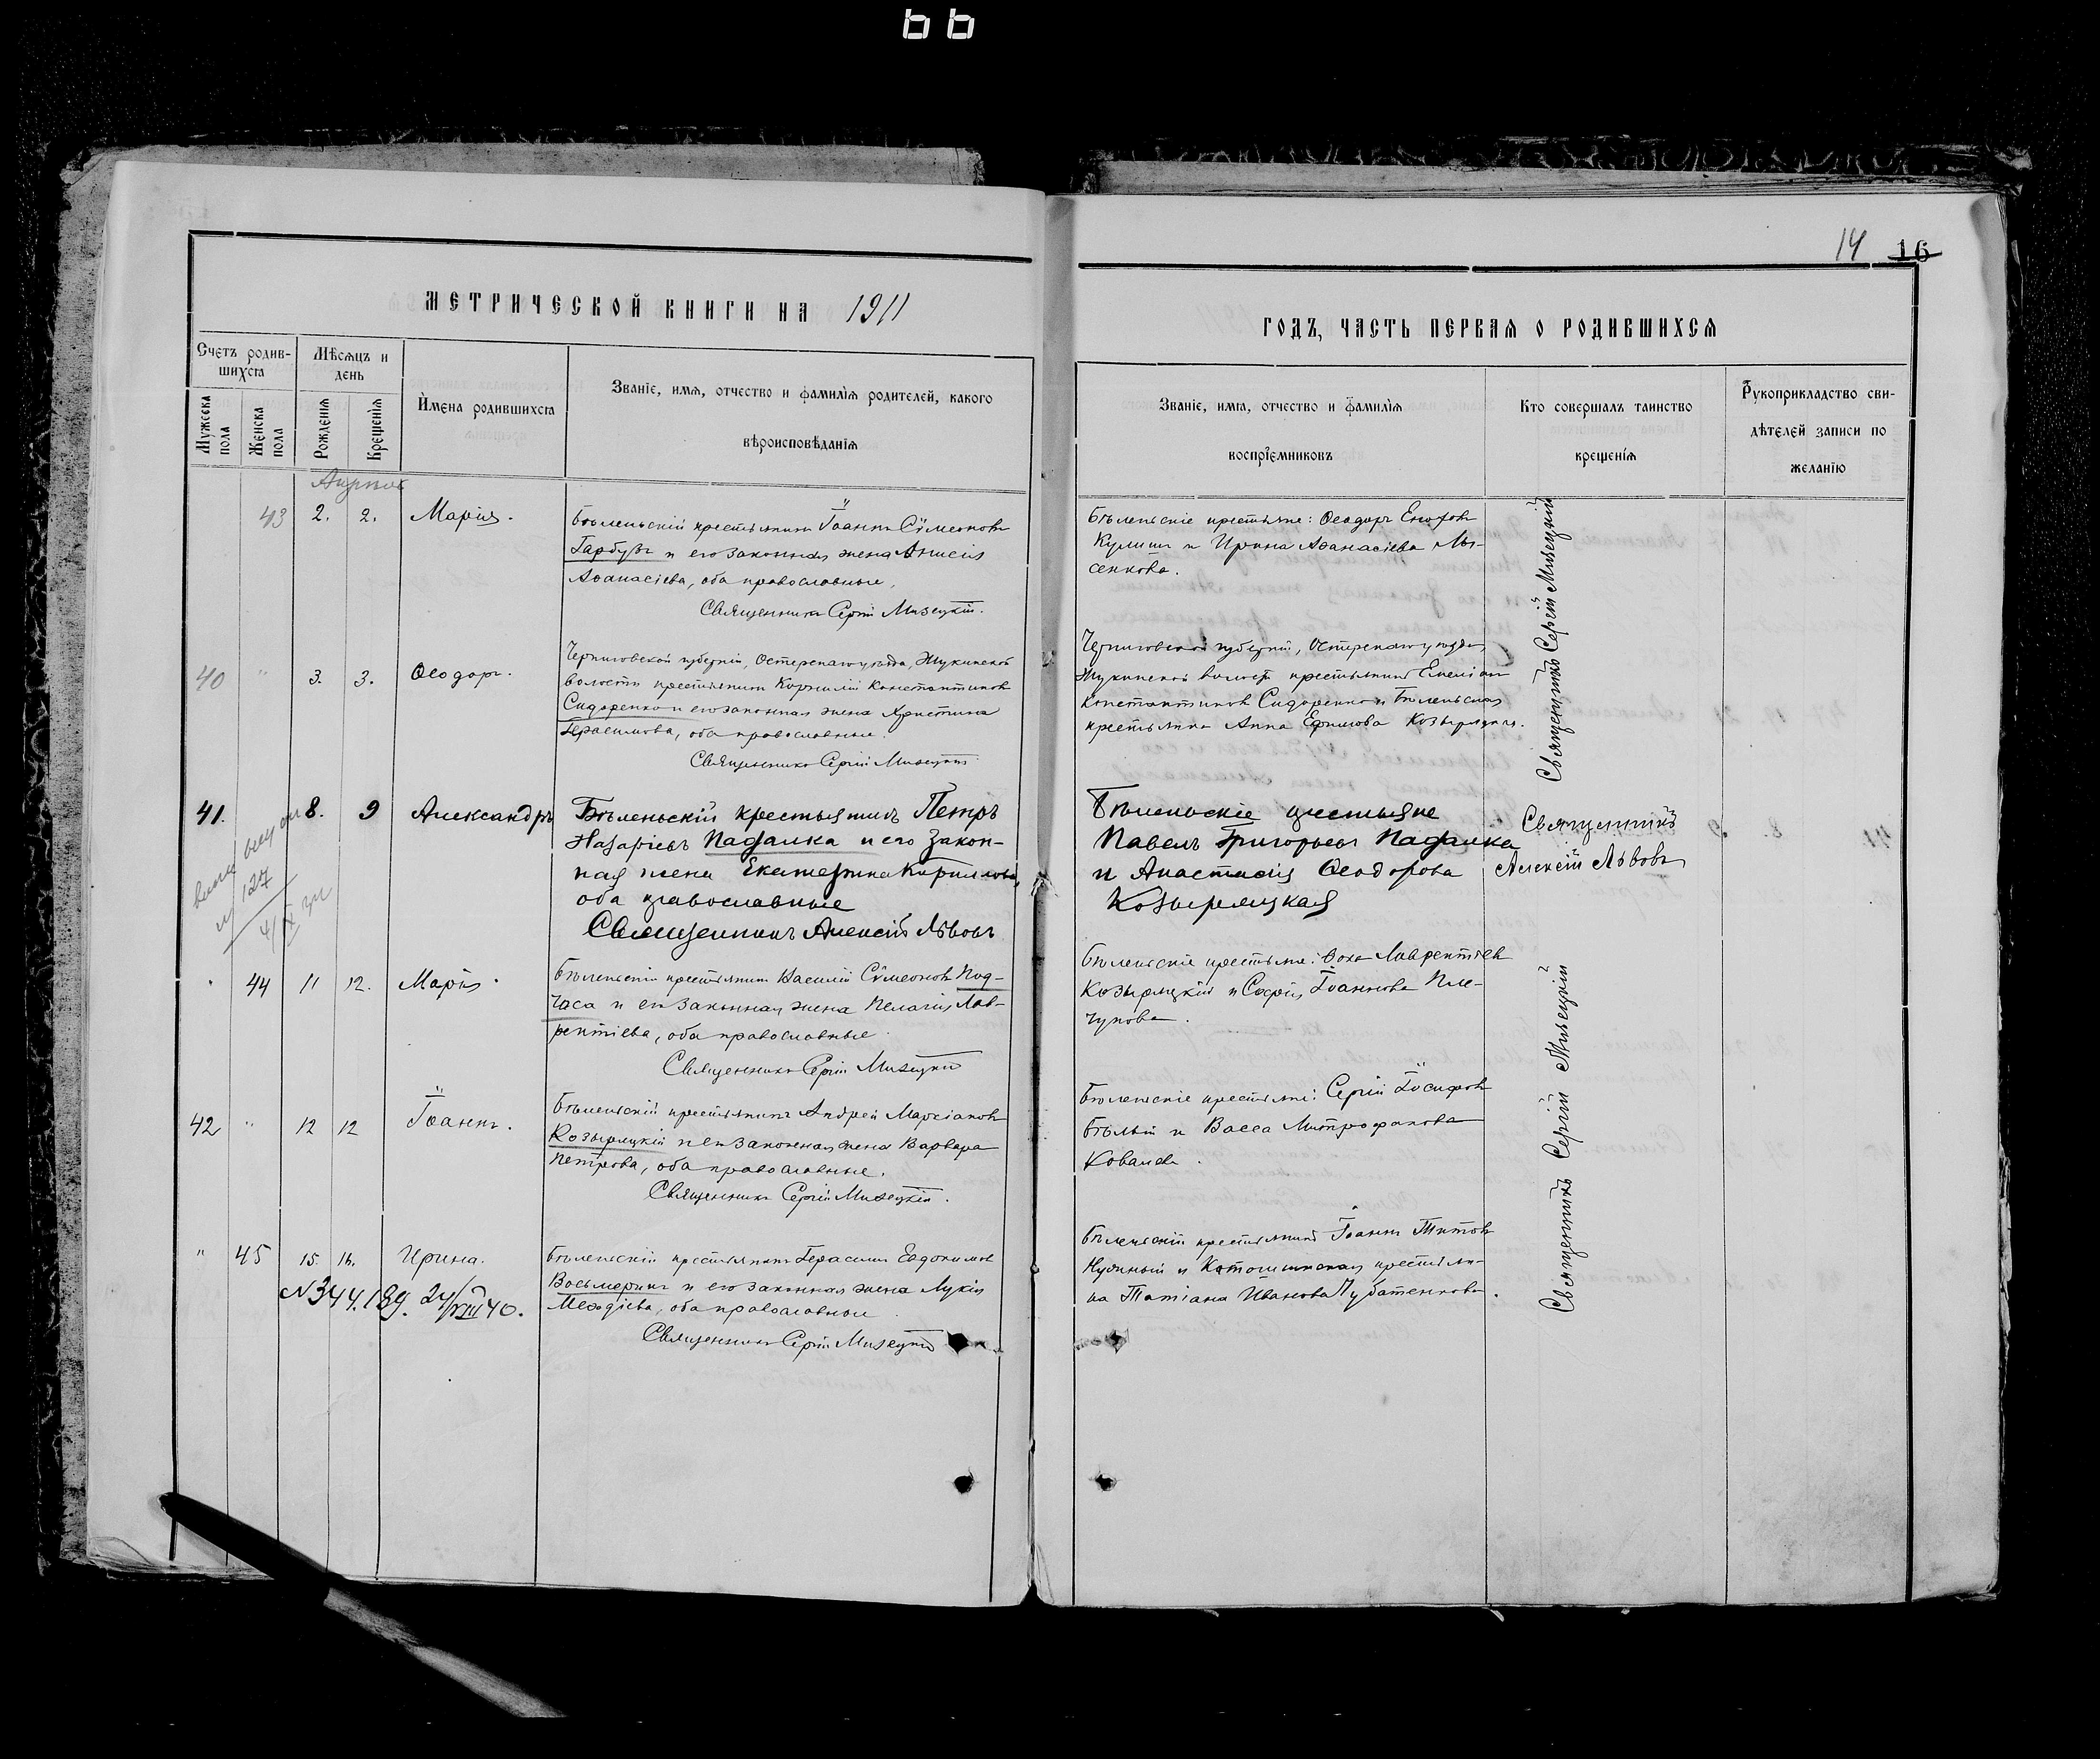 66
14 16
МЕТРИЧЕСКОЙ КНИГИ НА 1911
ГОДЪ, ЧАСТЬ ПЕРВАЯ О РОДИВШИХСЯ
Счетъ родив-
шихся
Мужеска пола
Женска пола
Мѣсяцъ и
день
Рожденія
Крещенія
Имена родившихся
Званіе, имя, отчество и фамилія родителей, какого
вѣроисповѣданія
Званіе, имя, отчество и фамилія
воспріемниковъ
Кто совершалъ таинство
крещенія
Рукоприкладство сви-
дѣтелей записи по
желанію
Апрель
43 2. 2. Марія.
Бѣленьскій крестьянинъ Іоаннъ Сѵмеоновъ
Гарбузъ и его законная жена Анисія
Аѳанасіева, оба православные.
Священникъ Сергій Мизецкій.
Бѣленьскіе крестьяне: Ѳеодоръ
Кулишъ и Ирина Аѳанасіева Лы-
сенкова.
Священникъ Сергій Мизецкій
40 " 3. 3. Ѳеодоръ.
Черниговской губерніи, Остерскаго уѣзда, Жукинской
волости крестьянинъ Корнилій Константиновъ
Сидоренко и его законная жена Христина
Герасимова, оба православные.
Священникъ Сергій Мизецкій
Черниговской губерніи, Остерскаго уѣзда,
Жукинской волости крестьянинъ Емеліанъ
Константиновъ Сидоренко и Бѣленьская
крестьянка Анна Ефимова Козырацкая.
41. 8. 9 Александръ
127
Бѣленьскій крестьянинъ Петръ
Назаріевъ Падалка и его закон-
ная жена Екатерина Кириллова,
оба православные
Священникъ Алексій Львовъ
Бѣленьскіе крестьяне
Павелъ Григорьевъ Падалка
и Анастасія Ѳеодорова
Козырацкая
Священникъ
Алексій Львовъ
" 44 11 12. Марія.
Бѣленьскій крестьянинъ Василій Сѵмеоновъ Под-
часа и его законная жена Пелагія Лав-
рентіева, оба православные.
Священникъ Сергій Мизецкій
Бѣленьскіе крестьяне: Ѳома Лаврентіевъ
Козырацкій и Софія Іоаннова Пле-
чунова.
Священникъ Сергій Мизецкій
42 " 12 12 Іоаннъ.
Бѣленьскій крестьянинъ Андрей Маркіановъ
Козырацкій и его законная жена Варвара
Петрова, оба православные.
Священникъ Сергій Мизецкій.
Бѣленьскіе крестьяне: Сергій Іосифовъ
Бѣлый и Васса Митрофанова
Ковалева.
" 45 15. 16. Ирина.
№344.189. 24/VIII 40.
Бѣленьскій крестьянинъ Герасимъ Евдокимовъ
Восьмерикъ и его законная жена Лукія
Меѳодіева, оба православные
Священникъ Сергій Мизецкій
Бѣленьскій крестьянинъ Іоаннъ Титовъ
Нудный и крестьян-
ка Татіана Иванова